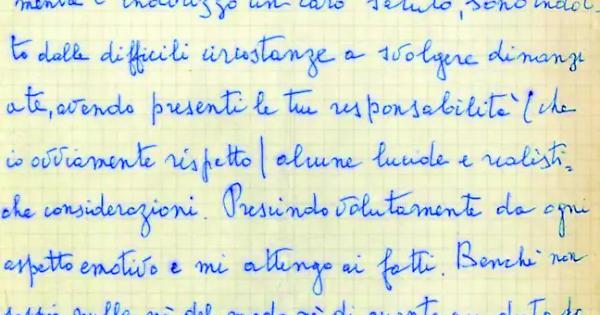 mente e indirizzo un caro saluto, sono indot-
to dalle difficili circostanze a svolgere dinanzi
a te, avendo presenti le tue responsabilità (che
io ovviamente rispetto) alcune lucide e realisti-
che considerazioni. Prescindo volutamente da ogni
aspetto emotivo e mi attengo ai fatti. Benchè non
sappia nulla nè del modo nè di quanto accaduto do